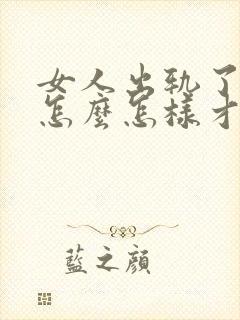 女人出轨了
怎麼怎樣才
藍之顔